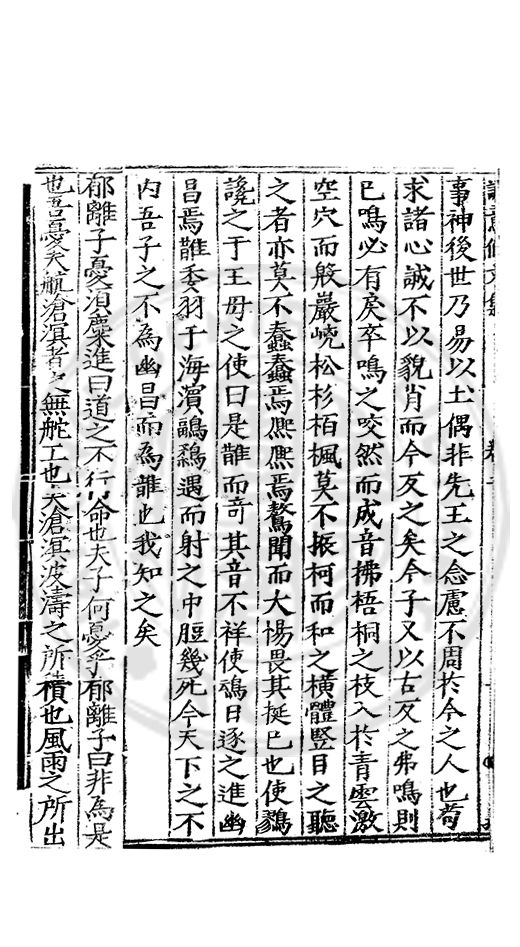 事神後世乃易以土偶非先王之念慮不周於今之人也苟
求諸心誠不以貌肖而今反之矣今子又以古反之弗鳴則
已鳴必有戾卒鳴之咬然而成音拂梧桐之枝入於青雲激
空穴而殷巖峣松杉栢楓莫不振柯而和之橫體豎目之聽
之者亦莫不蠢蠢焉熈熈焉驁聞而大惕畏其挻已也使鷚
讒之于王母之使曰是鵲而奇其音不祥使䳅日逐之進幽
昌焉鵲委羽于海濱鷊鶔遇而射之中脰幾死今天下之不
内吾子之不為幽昌而為鵲也我知之矣
郁離子憂須麋進曰道之不行命也夫子何憂乎郁離子曰非為是
也吾憂夫航滄溟者之無舵工也夫滄溟波濤之所積也風雨之所出